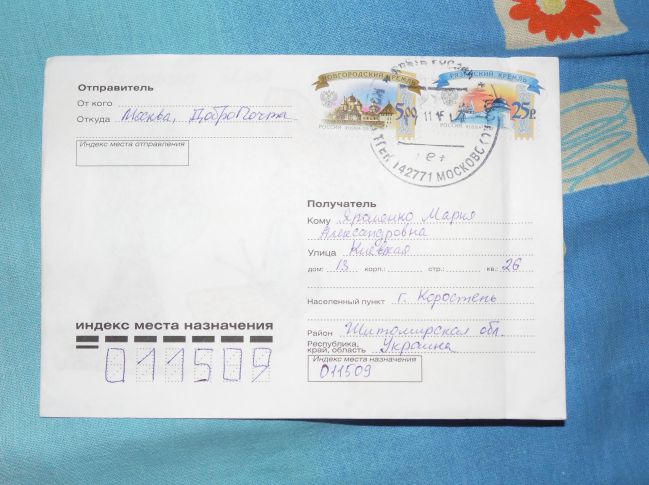 Отправитель
От кого
Откуда Москва, ДоброПочта
Индекс места отправления
НОВГОРОДСКИЙ КРЕМЛЬ
5,00
РОССИЯ
РЯЗАНСКИЙ КРЕМЛЬ
25р.
РОССИЯ
142771 МОСКОВС
Получатель
Кому Яроменко Мария
Александровна
Улица Киевская
дом: 13 корп.: стр.: кв.: 26
Населенный пункт г. Коростень
Район Житомирская обл.
Республика,
край, область Украина
Индекс места назначения
011509
индекс места назначения
011509